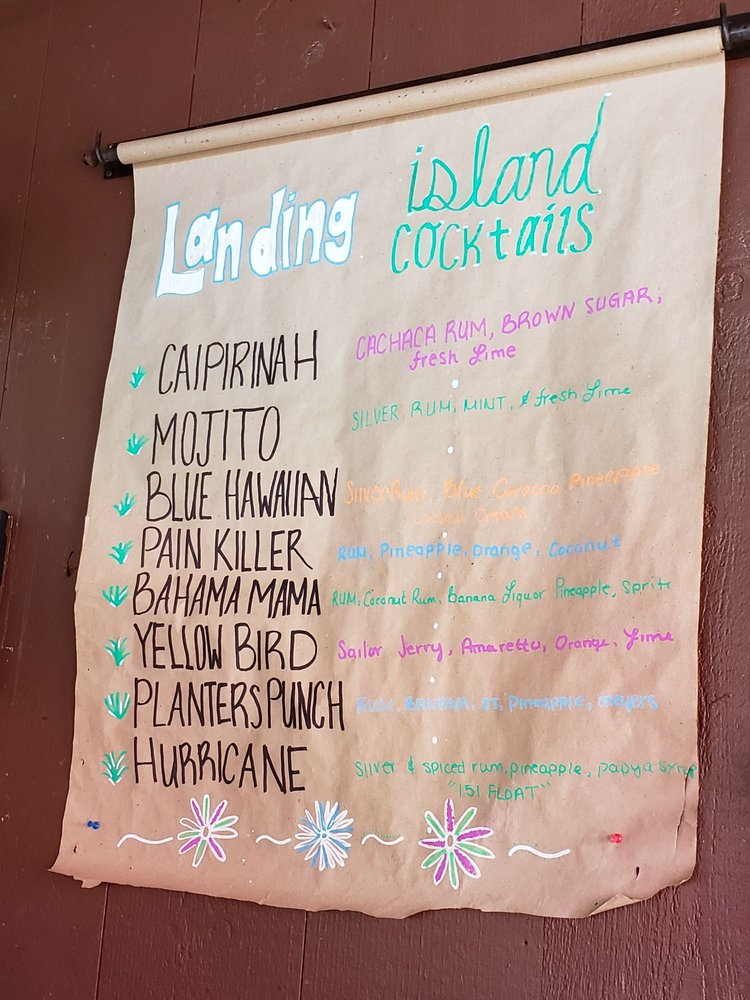 Landing island cocktails
CAIPIRINAH CACHACA RUM, BROWN SUGAR,
fresh Lime
MOJITO SILVER RUM, MINT, & fresh Lime
BLUE HAWAIIAN Silver Rum Blue Pineapple
Coconut Cream
PAIN KILLER RUM, Pineapple, Orange, Coconut
BAHAMA MAMA RUM, Coconut Rum, Banana Liquor Pineapple, Sprite
YELLOW BIRD Sailor Jerry, Amaretto, Orange, Lime
PLANTERS PUNCH OJ, Pineapple, meyers
HURRICANE Silver & spiced rum, pineapple, papya syrup
"151 FLOAT"